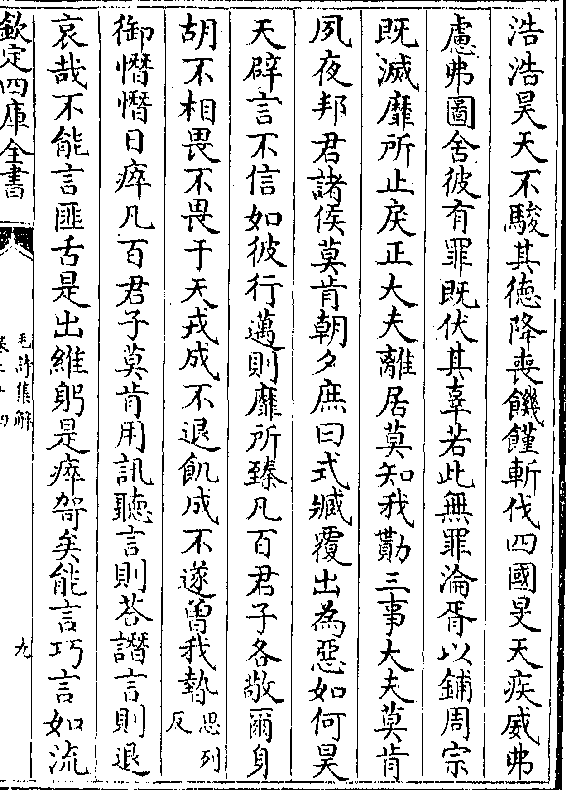 浩浩昊天不駿其徳降喪饑饉斬伐四國旻天疾威弗
慮弗圖舍彼有罪既伏其辜若此無罪淪胥以鋪周宗
既滅靡所止戾正大夫離居莫知我勩三事大夫莫肯
夙夜邦君諸侯莫肯朝夕庶曰式臧覆出為惡如何昊
天辟言不信如彼行邁則靡所臻凡百君子各敬爾身
胡不相畏不畏于天戎成不退飢成不遂曾我暬思列反
御憯憯日瘁凡百君子莫肯用訊聽言則荅譖言則退
哀哉不能言匪舌是出維躬是瘁哿矣能言巧言如流
欽定四庫全書
毛詩集解
卷二十四
九